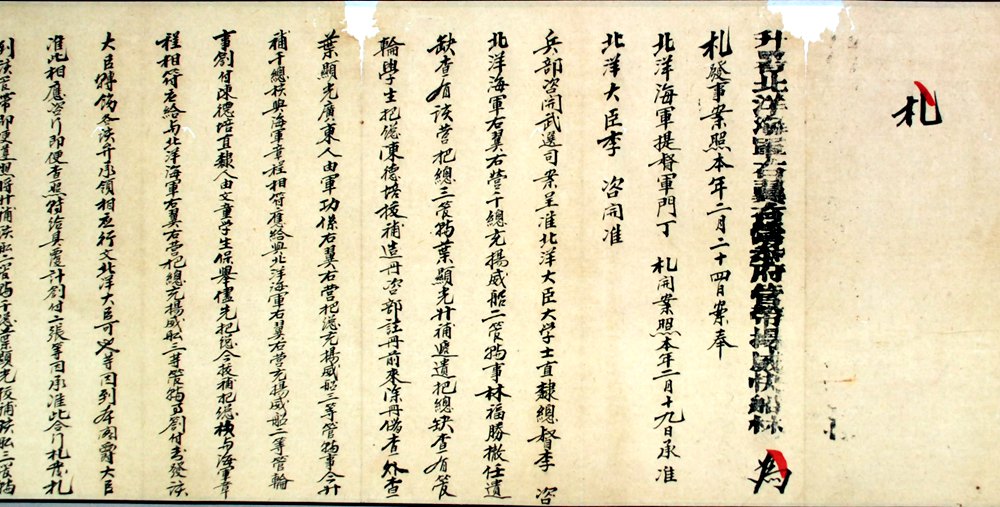 札
升署北洋海軍右翼右營參府管帶揚威快船林 為
札發事案照本年二月二十四日案奉
北洋海軍提督軍門丁 札開案照本年二月十九日承准
北洋大臣李 咨開准
兵部咨開武選司案呈准北洋大臣大學士直隸總督李 咨
北洋海軍右翼右營千總充揚威船二管輪事林福勝撤任遺
缺查有該營把總三管輪葉顯光升補遞遺把總缺查有管
輪學生把總陳德培拔補造冊咨部註冊前來除冊備查外查
葉顯光廣東人由軍功係右翼右營把總充揚威船三等管輪事今升
補千總核與海軍章程相符應給與北洋海軍右翼右營充揚威船二等管輪
事劄付陳德培直隸人由文童學生保舉儘先把總今拔補把總核与海軍章
程相符應給与北洋海軍右翼右營把總充揚威船三等管輪劄付發該
大臣轉飭各該弁承領相應行文北洋大臣可也等因到本閣爵大臣
准此相應咨行即便查照轉給具覆計劄付二張等因承准此合行札發札
到該管帶即便遵照將升補該船二管輪千總葉顯光拔補該船三管輪